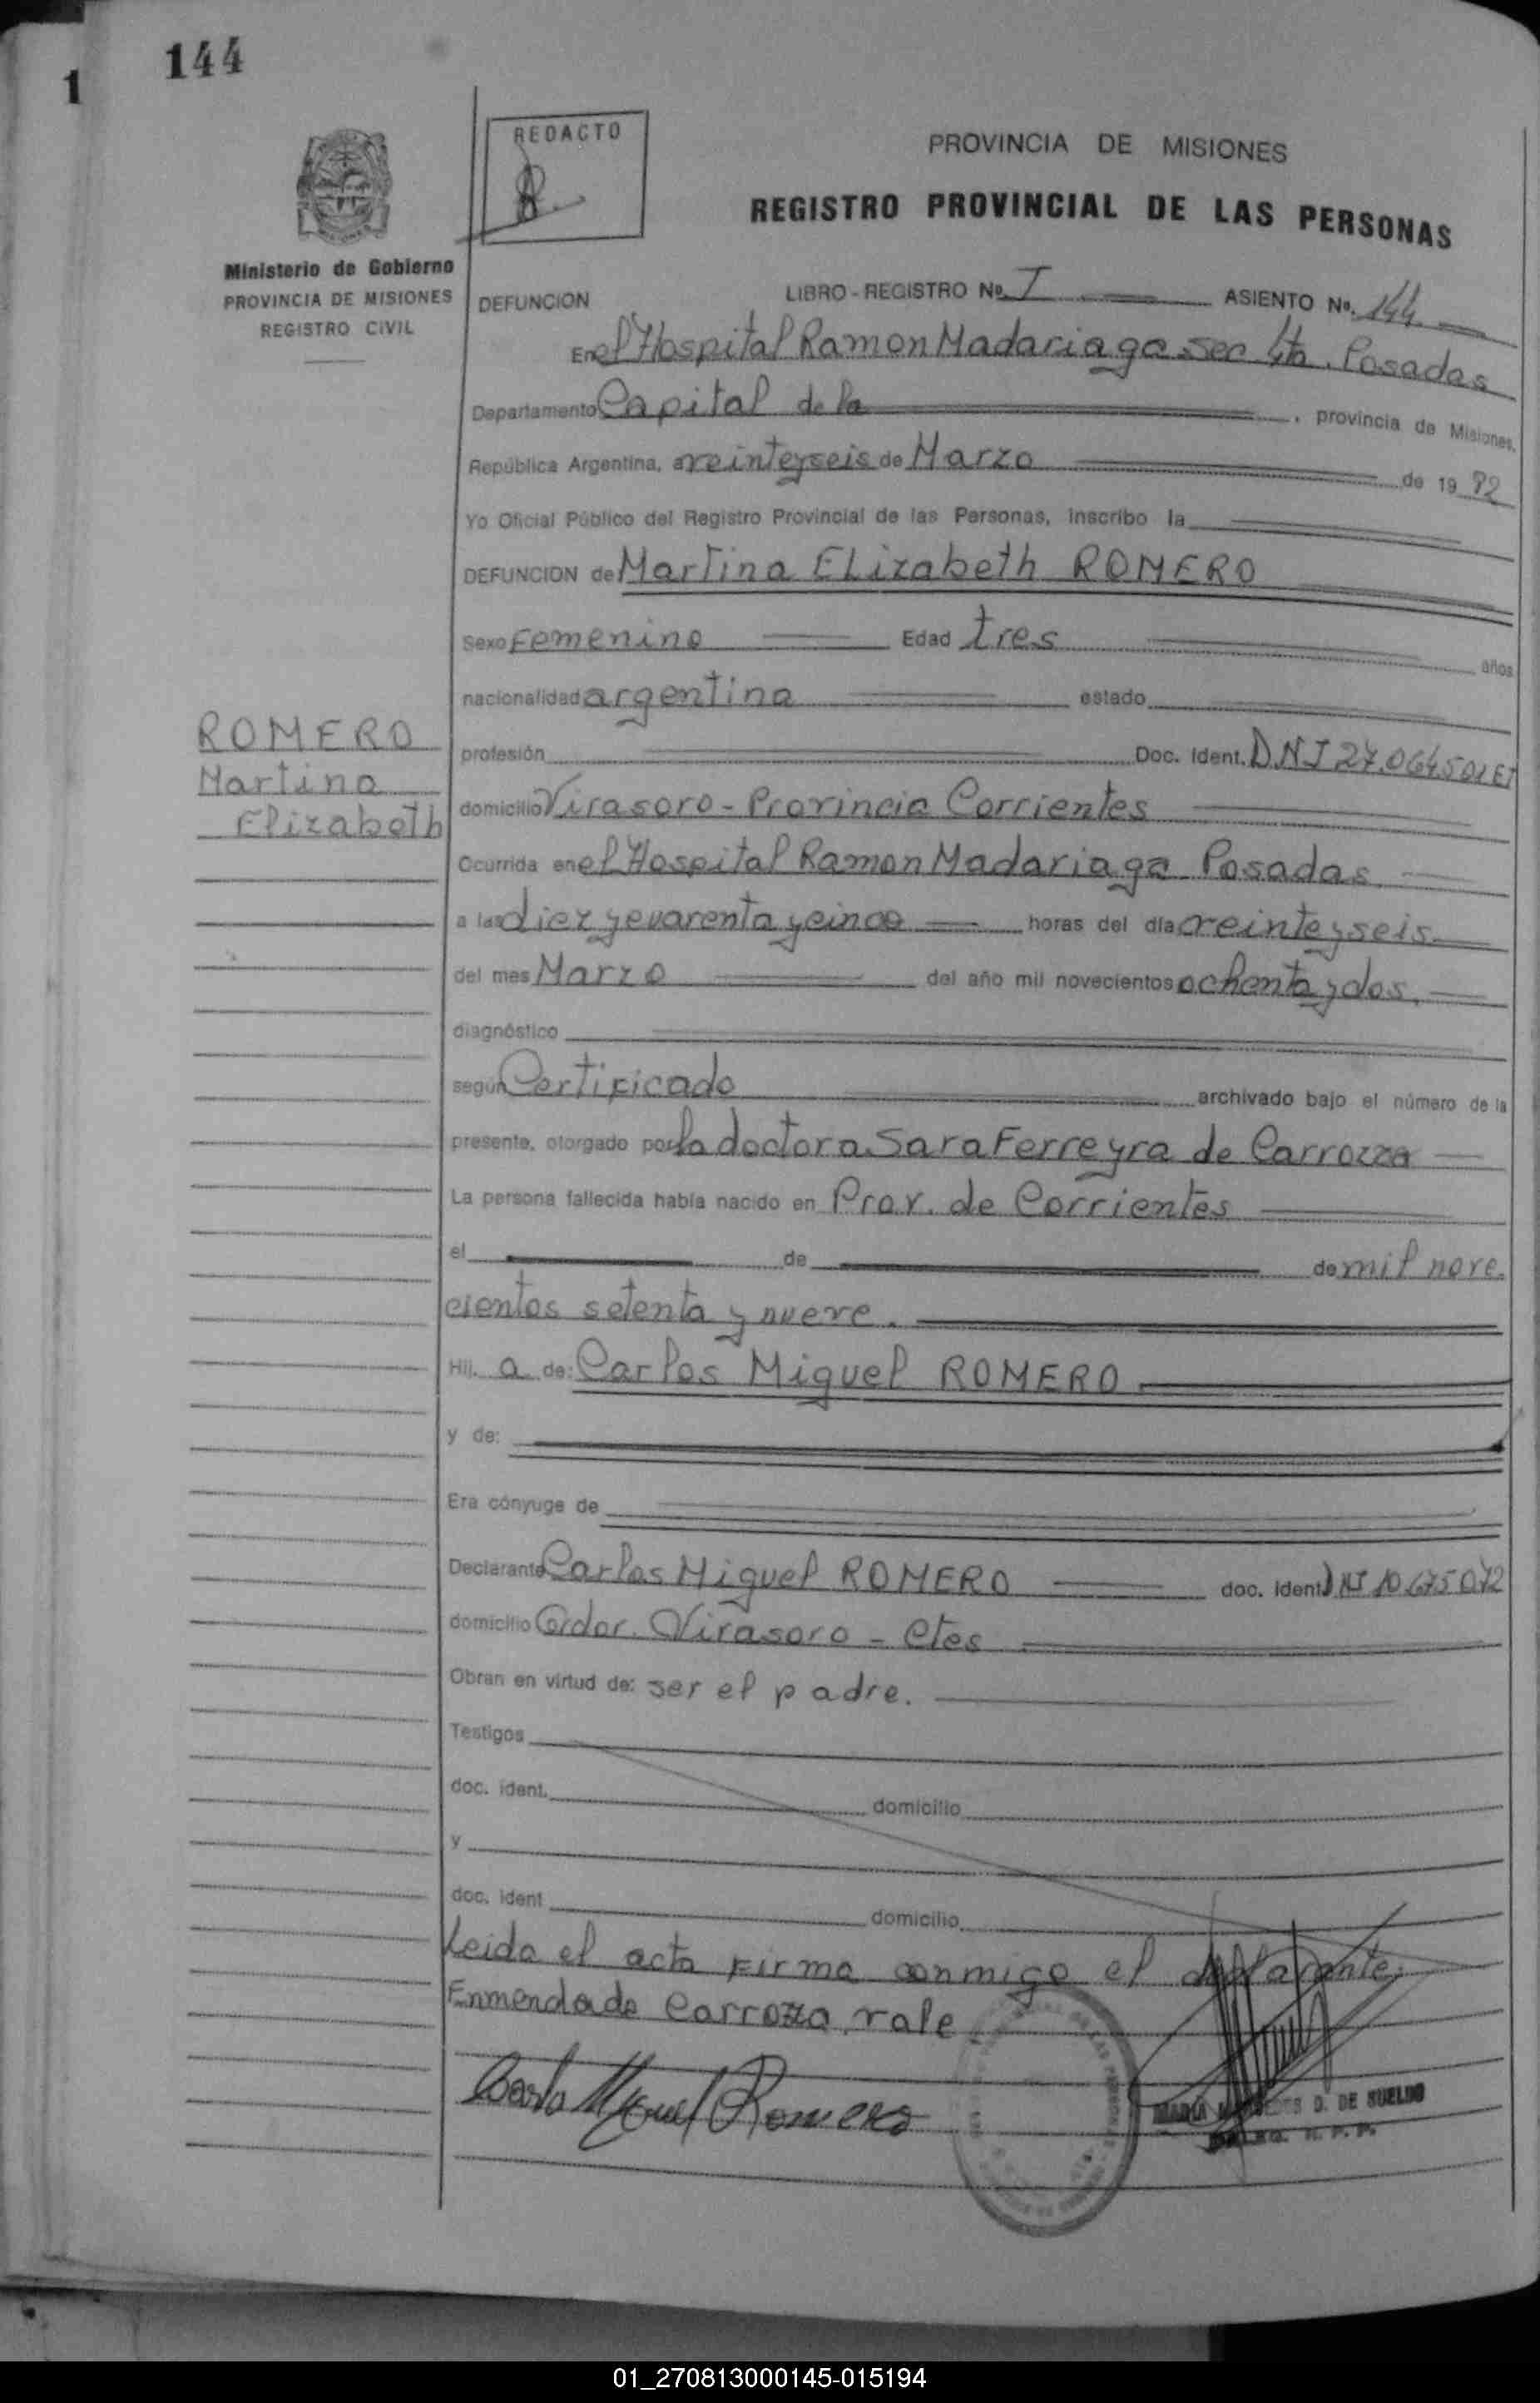 144
1
REDACTO
PROVINCIA DE MISIONES
REGISTRO PROVINCIAL DE LAS PERSONAS
Ministerio de Gobierno
PROVINCIA DE MISIONES
REGISTRO CIVIL
DEFUNCION LIBRO - REGISTRO Nº I ASIENTO Nº. 144
En el Hospital Ramon Madariaga sec 4ta. Posadas
Departamento Capital de la , provincia de Misiones,
República Argentina, a veinteyseis de Marzo de 19 82
Yo Oficial Público del Registro Provincial de las Personas, inscribo la
DEFUNCION de Martina Elizabeth ROMERO
Sexo Femenino Edad tres años
nacionalidad argentina estado
ROMERO
Martina
Elizabeth
profesión Doc. Ident. DNI 27.064.501
domicilio Virasoro - Provincia Corrientes
Ocurrida en el Hospital Ramon Madariaga Posadas
a las diez y cuarenta y cinco horas del día veinteyseis
del mes Marzo del año mil novecientos ochenta y dos.
diagnóstico
según Certificado archivado bajo el número de la
presente, otorgado por la doctora Sara Ferreyra de Carrozza
La persona fallecida había nacido en Prov. de Corrientes
el de de mil nove
cientos setenta y nueve.
Hij. a de: Carlos Miguel ROMERO
y de:
Era cónyuge de
Declarante Carlos Miguel ROMERO doc. ident. DNI 10.675.072
domicilio Gdor. Virasoro - Ctes
Obran en virtud de: ser el padre.
Testigos
doc. ident. domicilio
y
doc. ident domicilio
Leida el acta firma conmigo el declarante.
Enmendado Carrozza vale
Carlos Miguel Romero
D. DE SUELDO
01_270813000145-015194